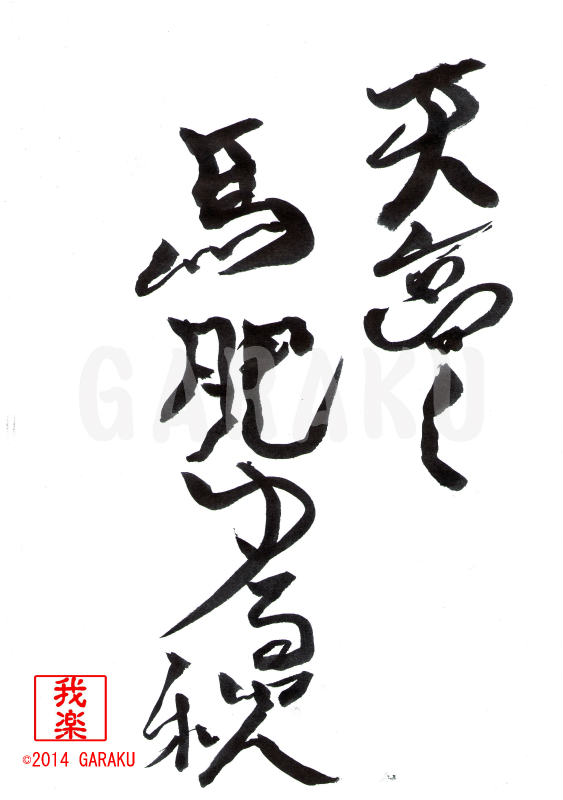 天高く
馬肥ゆる秋
GARAKU
我楽
©2014 GARAKU